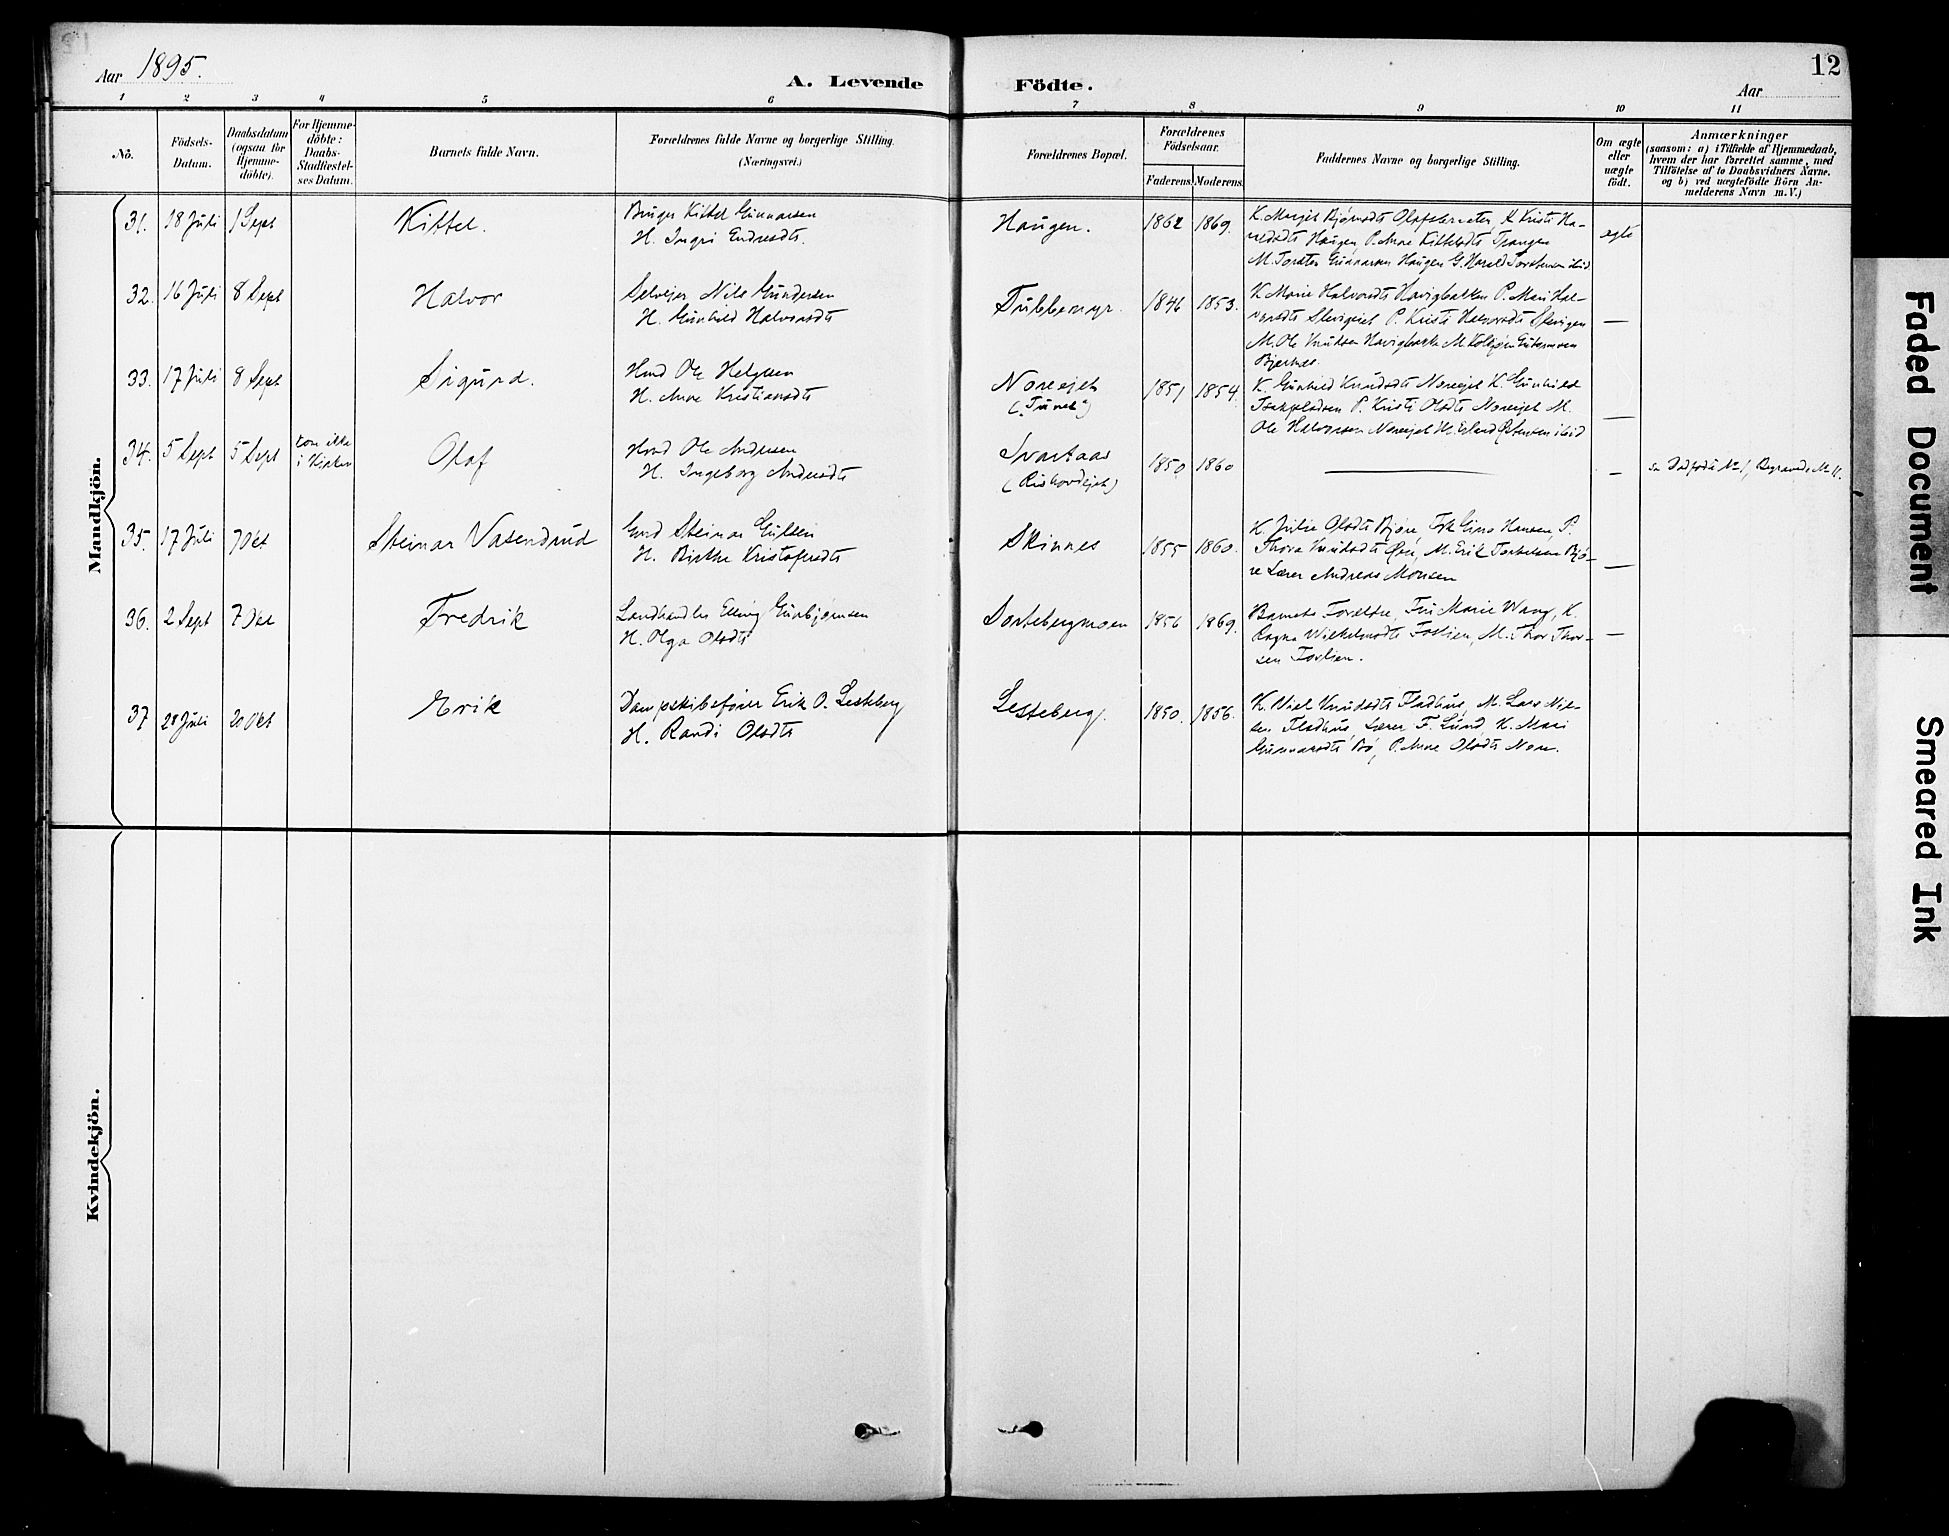 Aar 1895.
A. Levende Födte.
12
Aar
1 2 3 4 5 6 7 8 9 10 11
No.
Födsels-
Datum.
Daabsdatum
(ogsaa for
Hjemme-
döbte).
For Hjemme-
döbte:
Daabs-
Stadfæstel-
ses Datum.
Barnets fulde Navn.
Forældrenes fulde Navne og borgerlige Stilling.
(Næringsvei.)
Forældrenes Bopæl.
Forældrenes
Födselsaar.
Faderens.
Moderens.
Faddernes Navne og borgerlige Stilling.
Om ægte
eller
uægte
födt.
Anmærkninger
(saasom: a) i Tilfælde af Hjemmedaab,
hvem der har forrettet samme, med
Tilföielse af to Daabsvidners Navne.
og b) ved uægtefödte Börn An-
melderens Navn m. V.)
Mandkjön.
31. 18 Juli 1 Sept Kittel.
Bruger Kittel Gunnarsen
H. Ingri Endresdt.
Haugen. 1862 1869.
K. Margit Bjørnsdt K. Kristi Ha-
Haugen, P. Anne Kittelsdt
M. Torsten Gunnarsen Haugen G. Harald Torstensen ibid
egte
32. 16 Juli 8 Sept Halvor
Selvejer Nils Gundersen
H. Gunhild Halvorsdt
Tubbemyr. 1846 1853.
K. Marie Halvorsdt P. Mari Hal-
vorsdt P. Kristi Halvorsdt
M. Ole Knudsen
—
33. 17 Juli 8 Sept Sigurd.
Hmd Ole Helgesen
H. Anne Kristiansdt
Noreejet
("Tunet")
1851 1854.
K. Gunhild Knudsdt Noreejet K. Gunhild
P. Kristi Olsdt Noreejet M.
Ole Halvorsen Noreejet M. Erland ibid
—
34. 5 Sept 5 Sept
kom ikke
i Kirken
Olaf
Hmd Ole Andersen
H. Ingeborg Andersdt
Svartaas
1850 1860
—
—
35. 17 Juli 7 Okt Steinar Vasendrud
Gmd Steinar Gulsen
H. Birthe Kristofersdt
Skinnes 1855 1860.
K. Julie Olsdt Bjøre, Frk Gina Hansen, P.
Thora Knudsdt M. Erik Torkelsen Bjø-
re Lærer Andreas Monsen
—
36. 2 Sept 7 Okt Fredrik
Landhandler Elling Gunbjørnsen
H. Olga Olsdt
1856 1869.
Barnets Forældre, Fru Marie Wang, K.
Ragna Wilhelmsdt Foslien, M. Thor Thor-
sen Foslien.
—
37 28 Juli 20 Okt Erik
Dampskibsfører Erik O. Lesteberg
H. Randi Olsdt
Lesteberg. 1850. 1856.
K. Knudsdt Fladhus, M. Lars Niel-
sen Fladhus, Lærer F. Lund, K. Mari
Gunnarsdt Bø, P. Anne Olsdt Nore.
Kvindekjön.
Faded Document
Smeared Ink